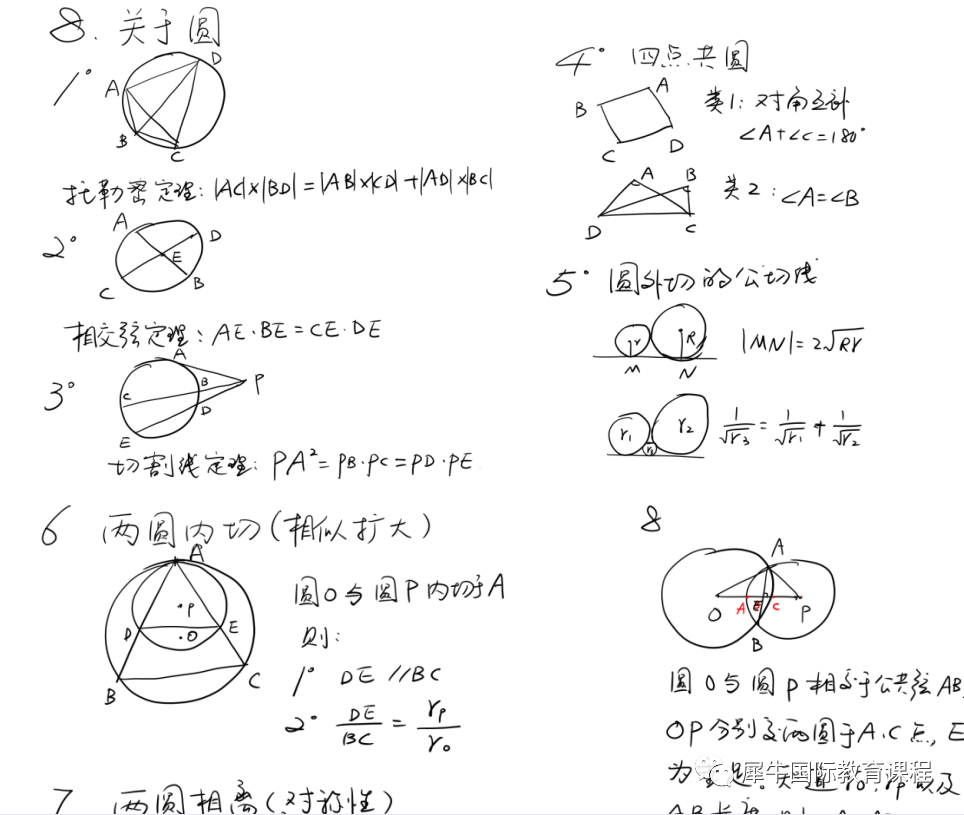 8. 关于圆
1°
A
D
B
C
托勒密定理: |AC|×|BD|=|AB|×|CD|+|AD|×|BC|
2°
A
D
E
C
B
相交弦定理: AE·BE=CE·DE
3°
A
B
P
C
D
E
切割线定理: PA²=PB·PC=PD·PE
4° 四点共圆
A
B
C
D
类1: 对角互补
∠A+∠C=180°
A
B
D
C
类2: ∠A=∠B
5° 圆外切的公切线
r
R
M
N
|MN|=2√Rr
r₁
r₂
r₃
1/√r₃=1/√r₁+1/√r₂
6 两圆内切(相似扩大)
A
P
D
E
O
B
C
圆O与圆P内切于A
则:
1° DE//BC
2° DE/BC=rP/rO
7 两圆相离(对称性)
8
A
O
A
E
C
P
B
圆O与圆P相交于公共弦AB,
OP分别交两圆于A.C点, E
为垂足。 rO, rP 以及
犀牛国际教育课程